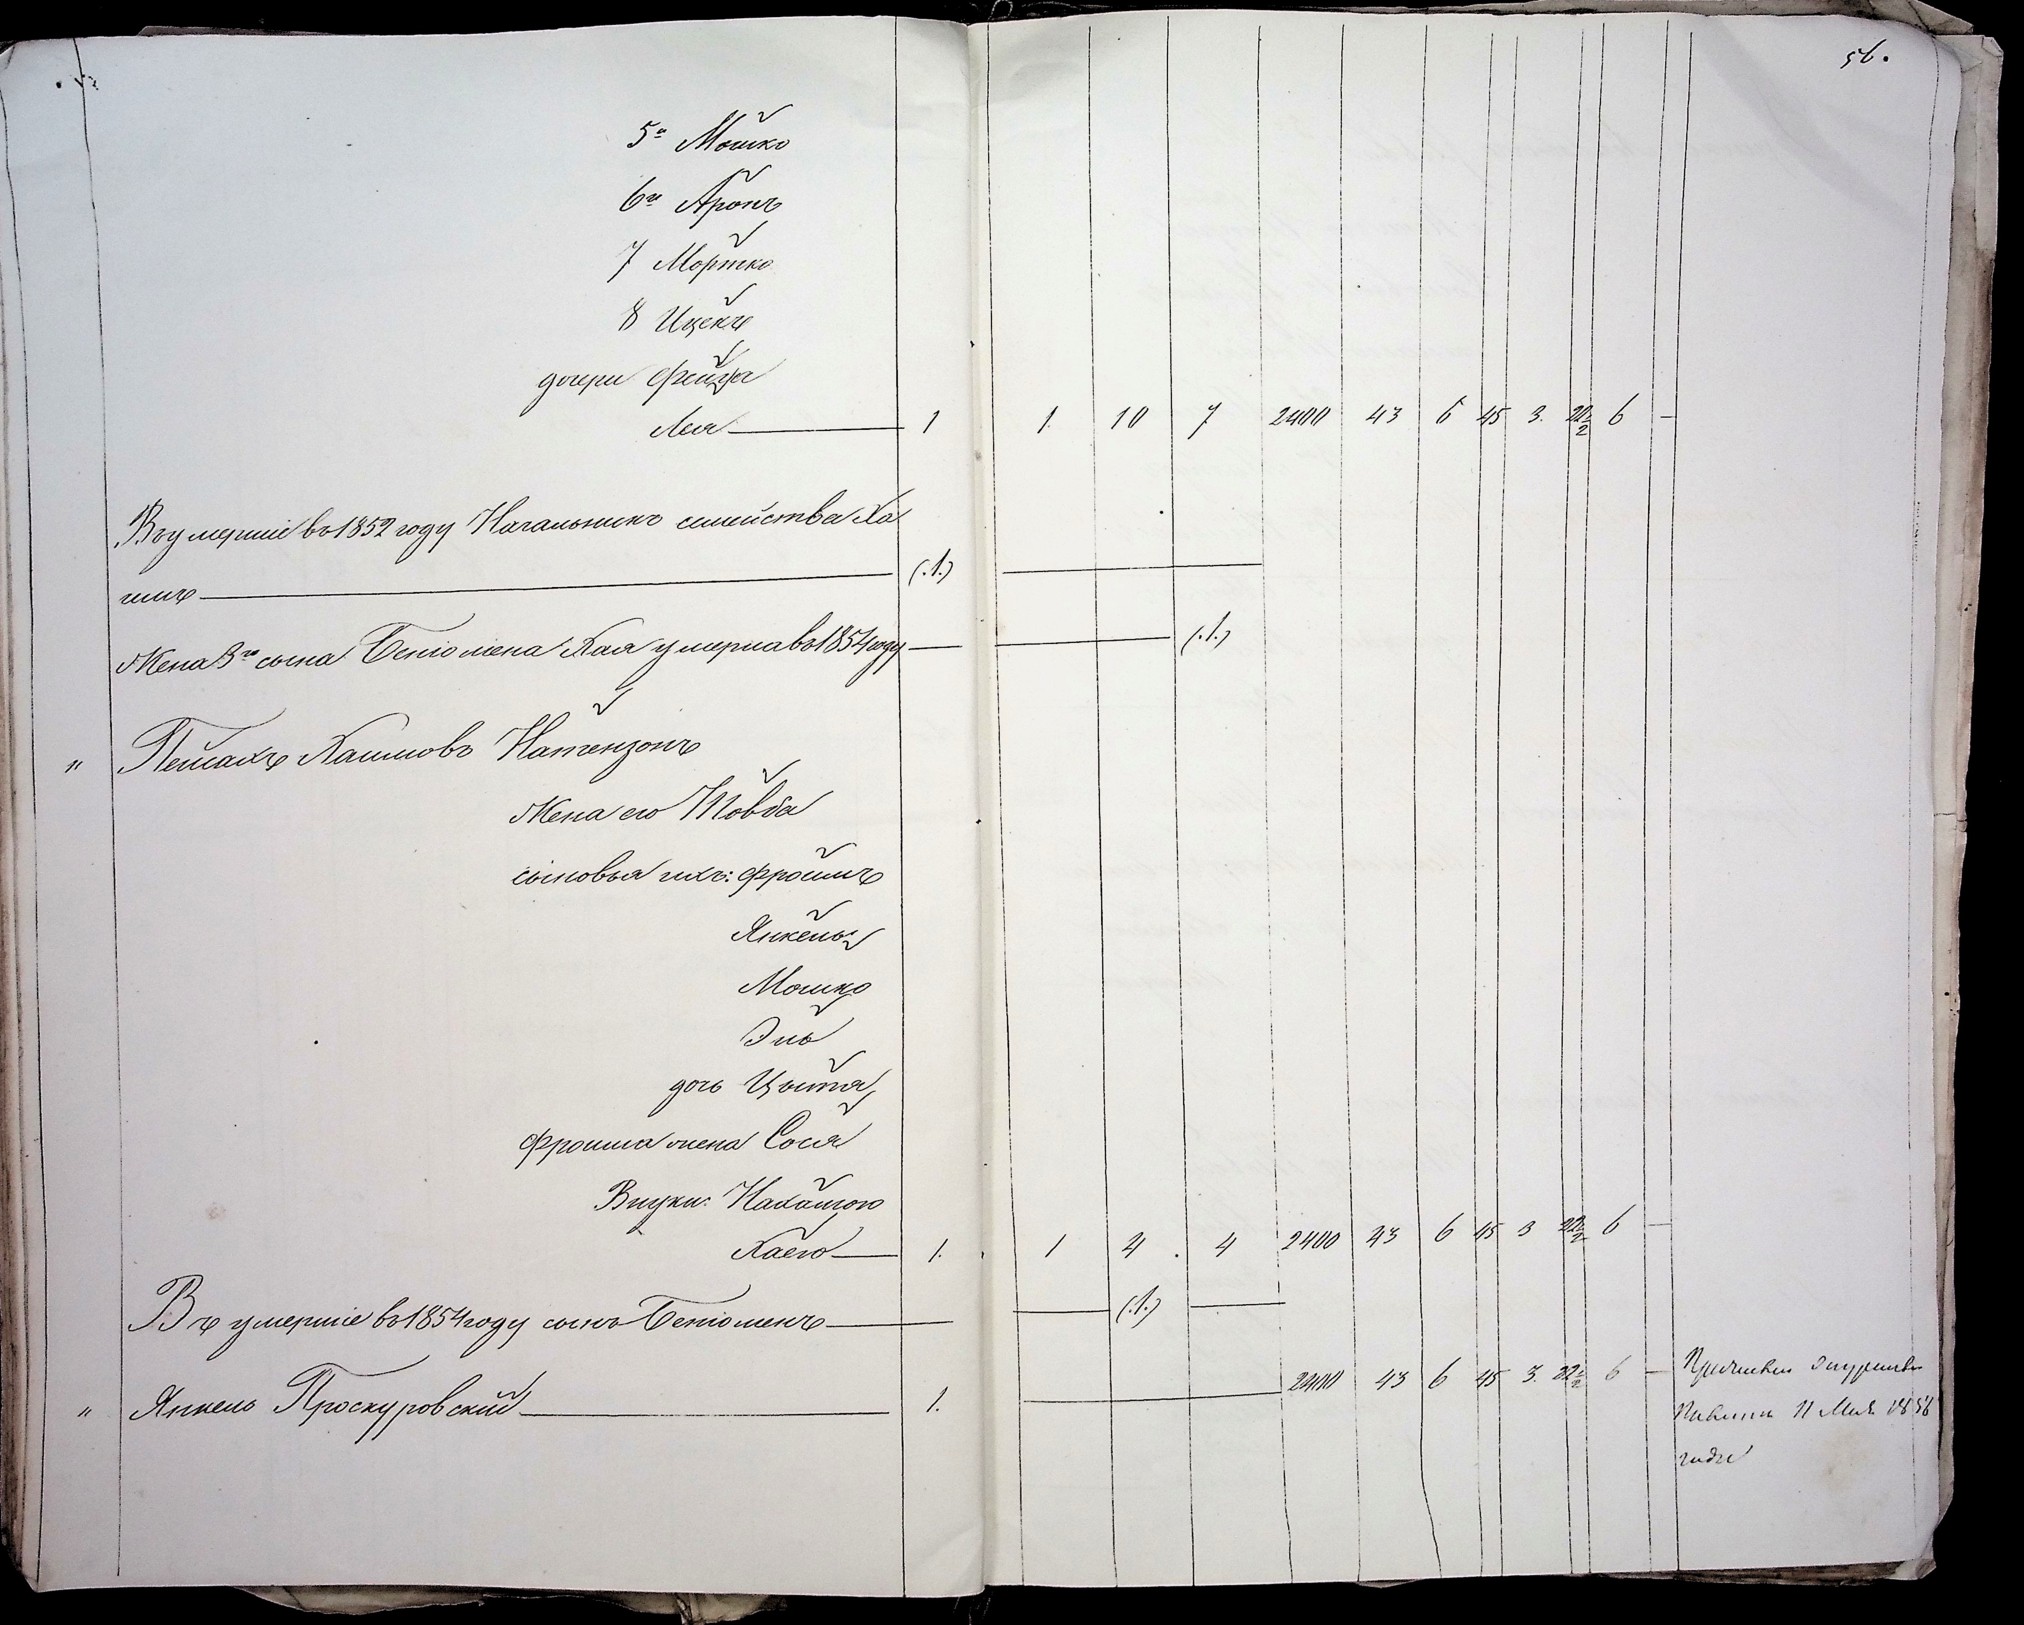 56.
5й Мошко
6й Аронъ
7 Мортко
8 Ицекъ
дочери Фейга
Лея 1 1. 10 7 2400 43 6 45 3. 22½ 6 —
Въ умершіе въ 1852 году Начальникъ семейства Ха
имъ (.1.)
Жена 3го сына Беніомена Хая умерла въ 1854 году — (.1.)
" Пейсахъ Хаимовъ Натензонъ
Жена его Товба
сыновья ихъ: Фроимъ
Янкель
Мошко
Эль
дочь Цытя
Фроима жена Сося
Внуки:
Хаею 1. 1 4 4 2400 43 6 45 3 22½ 6 —
Въ умершіе въ 1854 году сынъ Беніоменъ — (.1.) —
" Янкель Проскуровскій 1. 2400 43 6 45 3. 22½ 6 —
11 Мая 1856
года